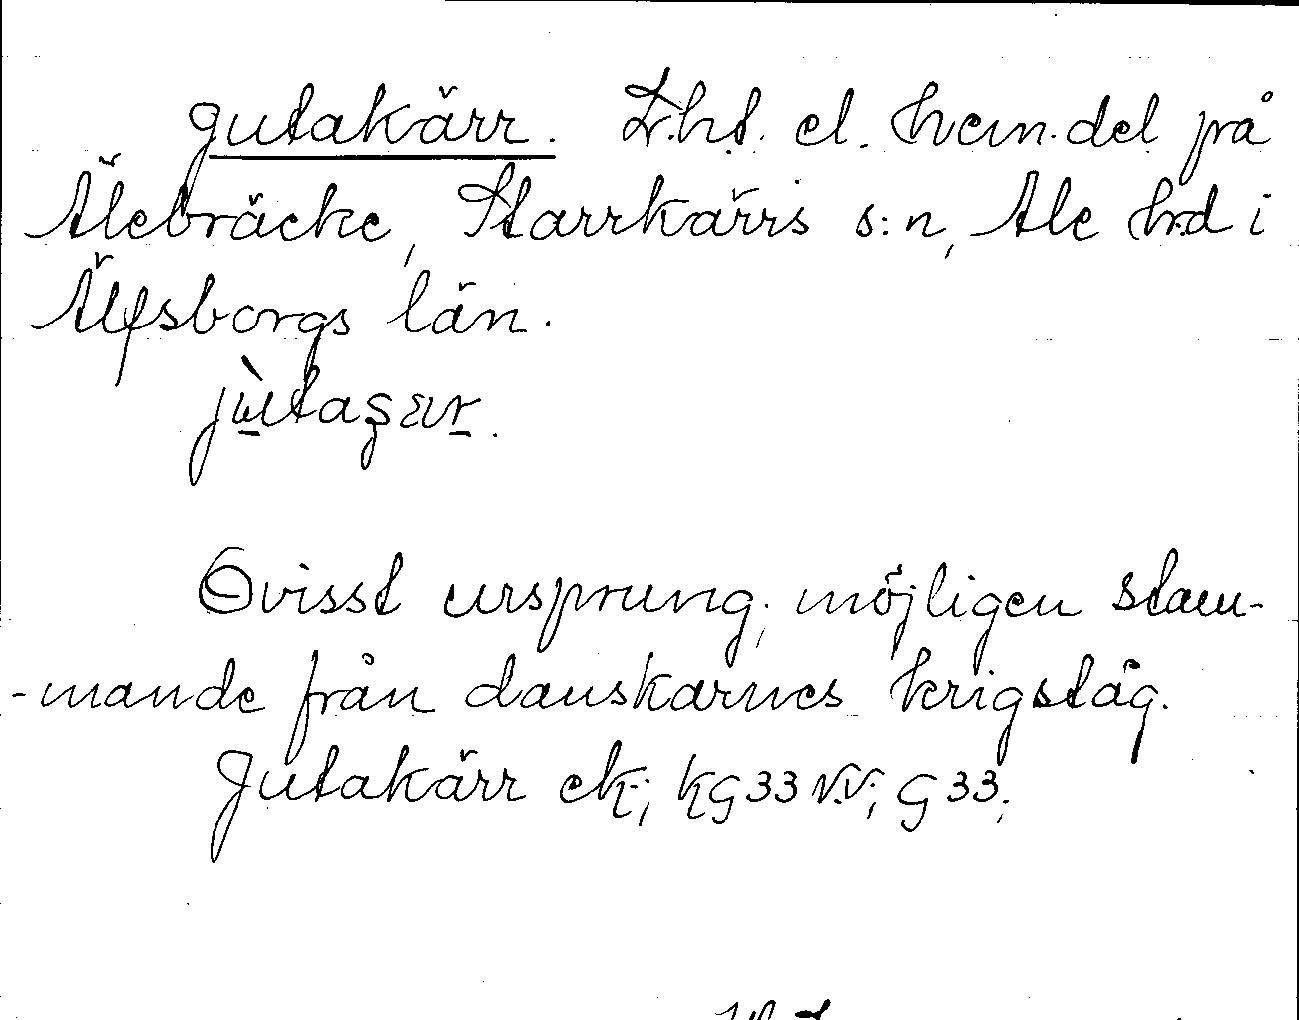 Jutakärr. L.h.t. el. hem.del på
Älebräcke, Starrkärrs s:n, Ale hrd i
Älfsborgs län.
jùtaʂær.
Ovisst ursprung; möjligen stam-
-mande från danskarnes krigståg.
Jutakärr ek; KG 33 N.V; G 33;